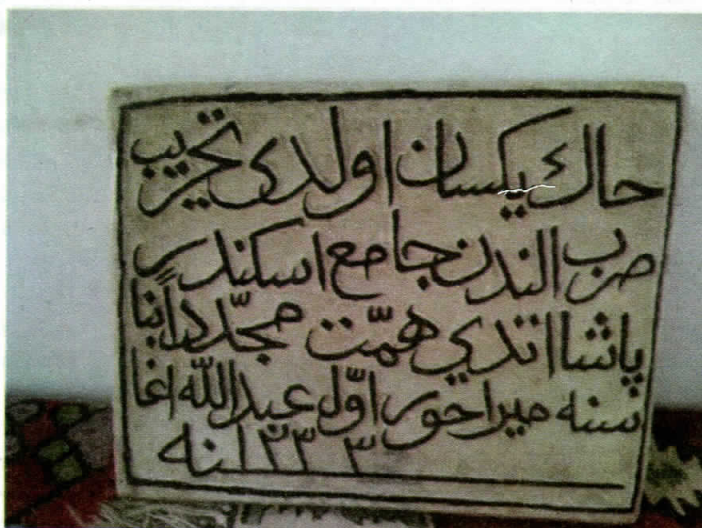 حاك يكسان اولدى تخريب
ضرب الندن جامع اسكندر
پاشا اتدي همّت مجدّداً بنا
سنه ميراخور اوّل عبد اللّه اغا
سنه ١٢٣٣